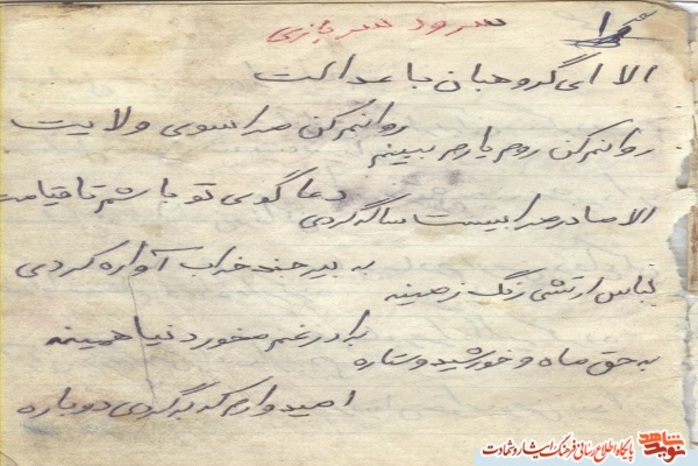 سرود سربازی
الا ای گروهبان با عدالت
روانم کن مرا سوی ولایت
روانم کن روم یارم ببینم
دعا گوی تو باشم تا قیامت
الا مادر مرا بیست سالگردی
به بیرجند خراب آواره کردی
لباس ارتشی رنگ زمینه
برادر غم مخور دنیا همینه
به حق ماه و خورشید و ستاره
امیدوارم که برگردی دوباره
نوید شاهد
پایگاه اطلاع رسانی فرهنگ ایثار و شهادت